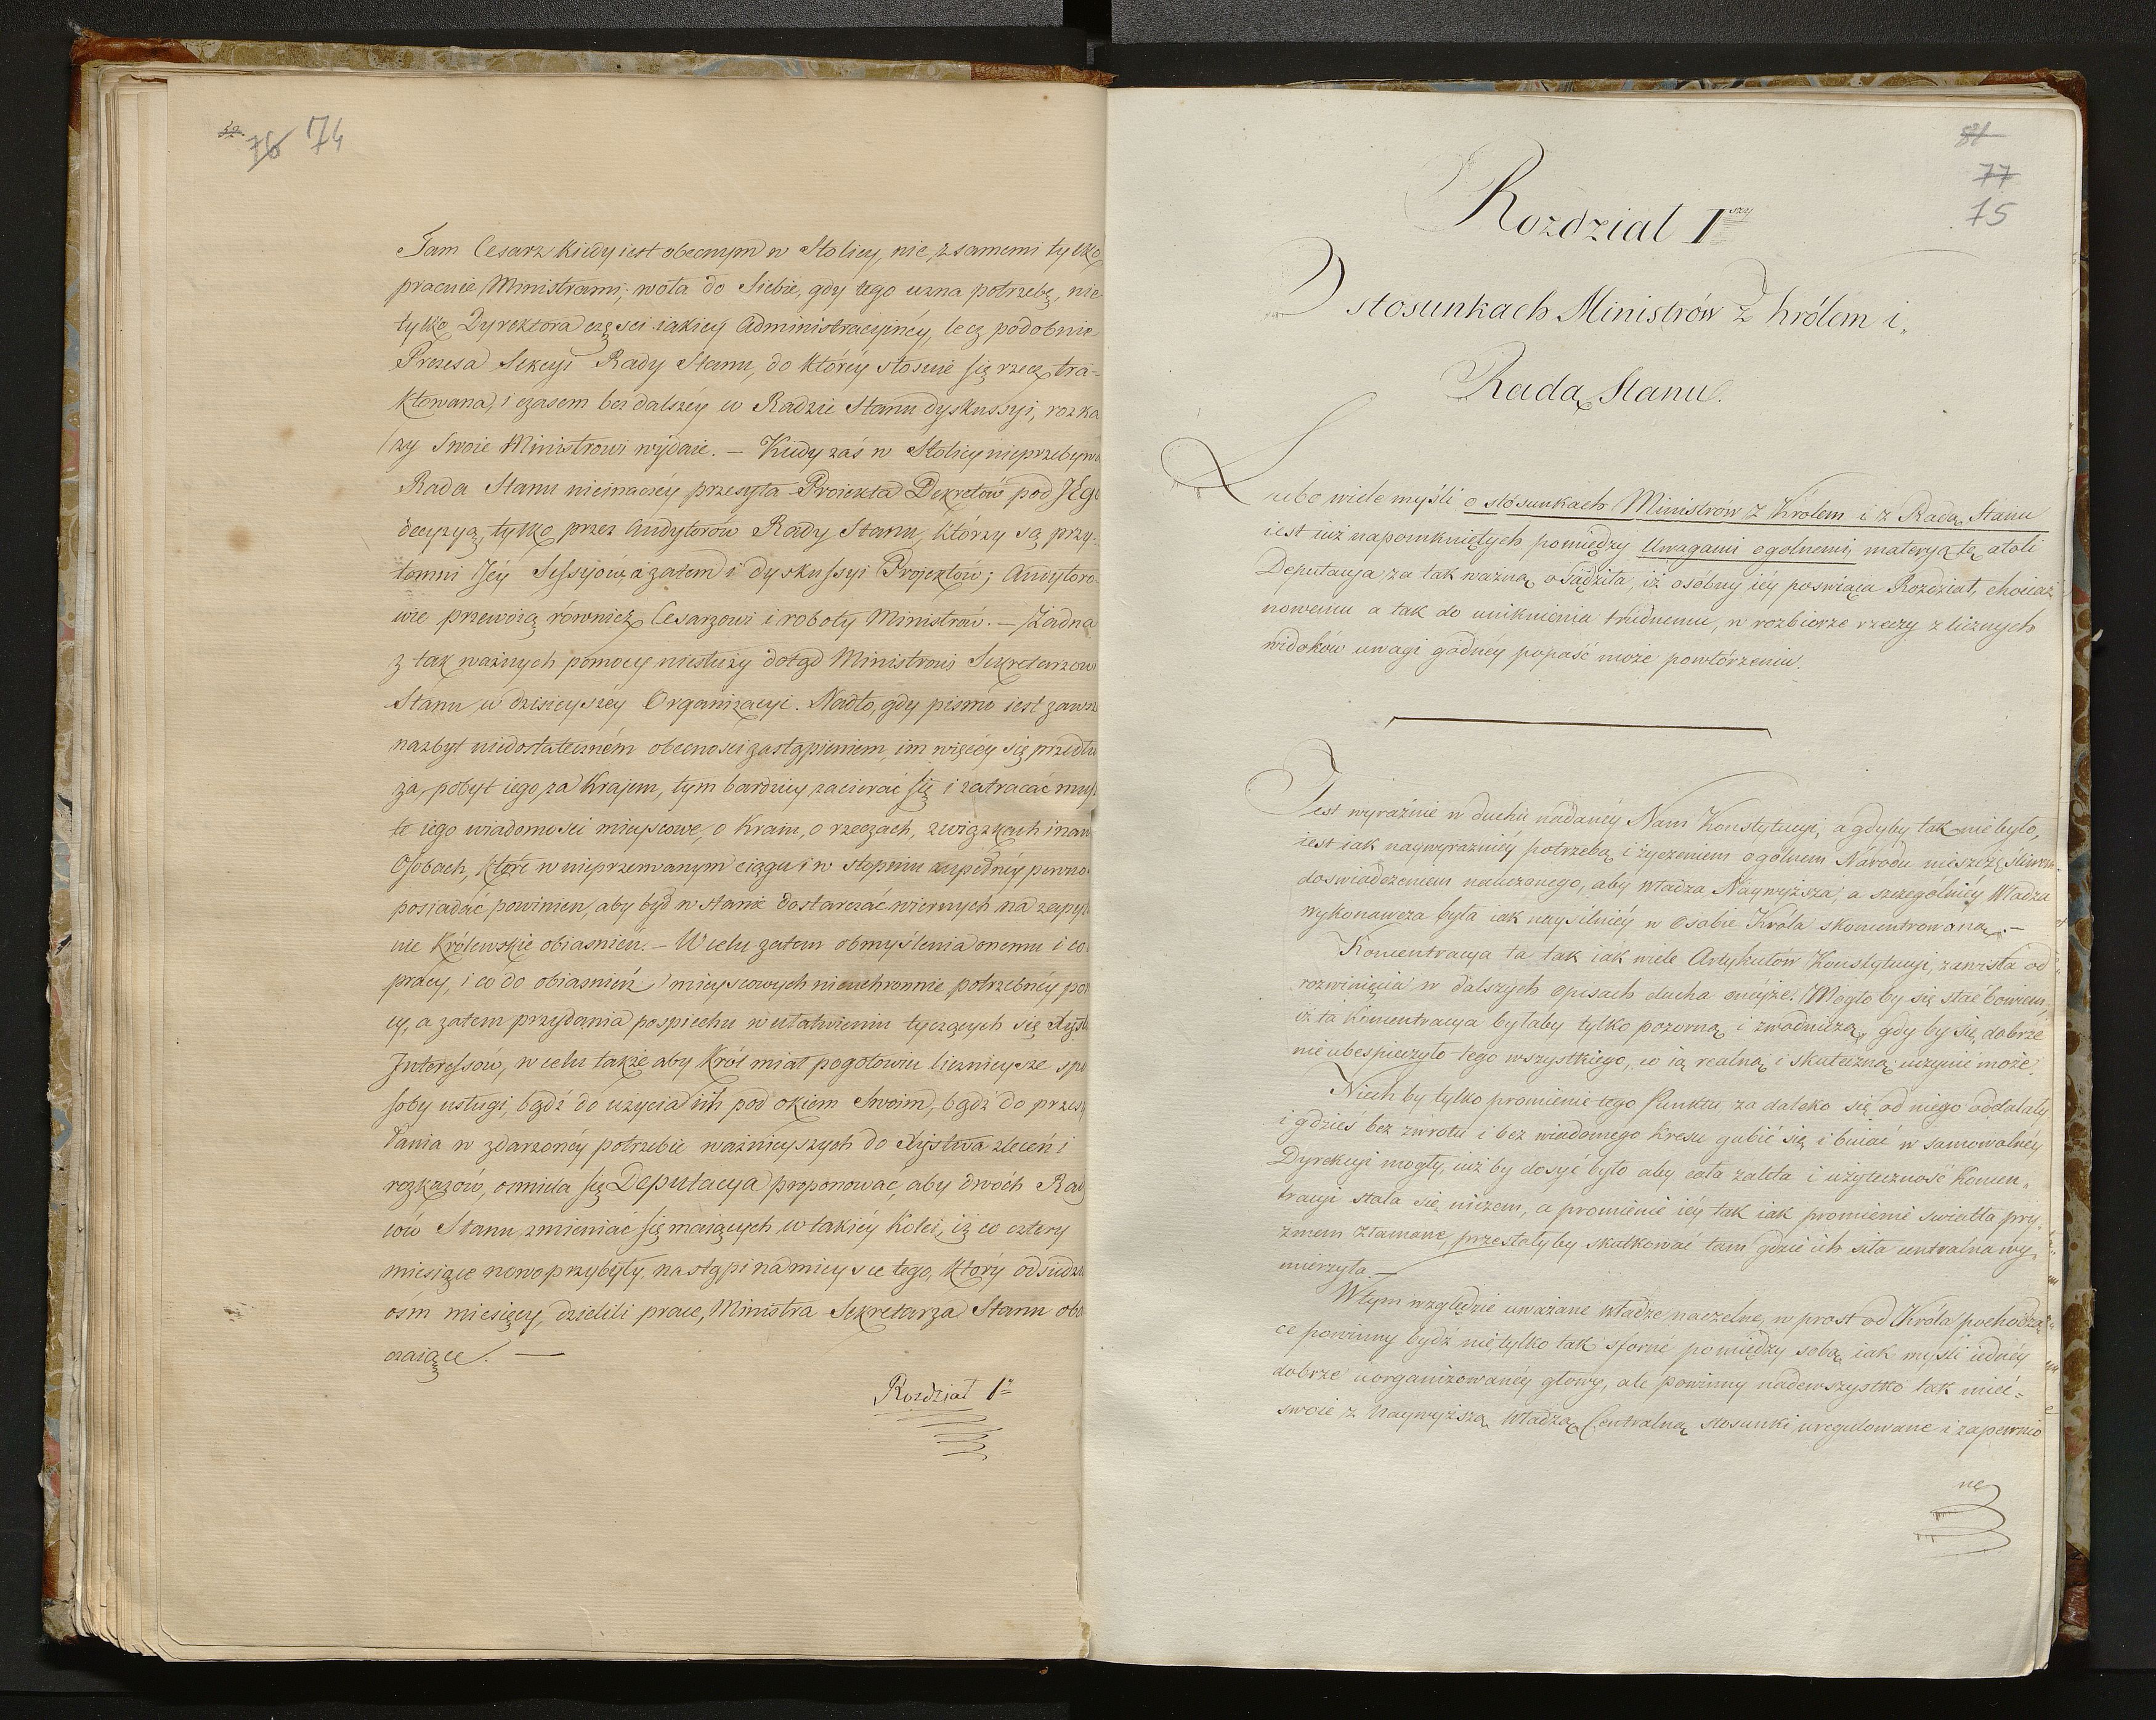 52. 76 74
Sam Cesarz kiedy iest obecnym w Stolicy, nie z samemi tylko
pracuie Ministrami; woła do Siebie, gdy tego uzna potrzebę, nie
tylko Dyrektora części iakiey Administracyinéy, lecz podobnie
Prezesa Sekcyi Rady Stanu, do któréy stosuie się rzecz tra-
ktowana, i czasem bez dalszéy w Radzie Stanu dyskussyi, rozka
zy Swoie Ministrowi wydaie. — Kiedy zaś w Stolicy nieprzebywa
Rada Stanu nieinaczéy przesyła Proiekta Dekretów pod JEgo
decyzyą, tylko przez Audytorów Rady Stanu, którzy są przy-
tomni Jéy Sessyów, a zatem i dyskussyi Projektów; Audytoro-
wie przewożą również Cesarzowi i roboty Ministrów. — Żadna
z tak ważnych pomocy niesłuży dotąd Ministrowi Sekretarzow
Stanu w dzisieyszéy Organizacyi. Nadto, gdy pismo iest zaws
nazbyt niedostateczném obecności zastąpieniem, im więcéy się przedłu
ża, pobyt iego za Krajem, tym bardziey zacierać się i zatracać mus
te iego wiadomości mieyscowe, o Kraiu, o rzeczach, związkach i naw
Osobach, które w nieprzerwanym ciągu i w stopniu zupełnéy pewno
posiadać powinien, aby bydź w stanie dostarczać wiernych na zapyt
nie Królewskie obiasnień. — W celu zatem obmyślenia onemu i co
pracy, i co do obiasnień mieyscowych nieuchronnie potrzebnéy pom
cy, a zatem przydania pospiechu w ułatwieniu tyczących się Xyst
Interessów, w celu także aby Król miał pogotowiu licznieysze spo
soby usługi, bądź do użycia ich pod okiem Swoim, bądź do przes
łania w zdarzonéy potrzebie ważnieyszych do Xięstwa zleceń i
rozkazów, ośmiela się Deputacya proponować, aby dwóch Rad
ców Stanu zmieniać się maiących w takiéy Kolei, iż co cztery
miesiące nowo przybyły, nastąpi na mieysce tego, który odsiedzi
ośm miesięcy, dzielili prace, Ministra Sekretarza Stanu obar
czaiące. —
Rozdział 1y
81
77
75
Rozdział Iszy
O stosunkach Ministrów z Królem i
Radą Stanu.
Lubo wiele myśli o stosunkach Ministrów z Królem i z Radą Stanu
iest iuż napomkniętych pomiędzy Uwagami ogólnemi, materyą tę atoli
Deputacya za tak ważną osądziła, iż osóbny iéy poswiąca Rozdział, chociaż
nowemu a tak do uniknienia trudnemu, w rozbiorze rzeczy z licznych
widoków uwagi godnéy popaść może powtórzeniu.
Jest wyraźnie w duchu nadanéy Nam Konstytucyi, a gdyby tak nie było,
iest iak naywyraźniéy potrzebą i życzeniem ogólnem Narodu nieszczęśliwem
doświadczeniem nauczonego, aby Władza Naywyższa, a szczególniéy Władza
wykonawcza była iak naysilniéy w osobie Króla skoncentrowaną. —
Koncentracya ta tak iak wiele Artykułów Konstytucyi, zawisła od
rozwinięcia w dalszych opisach ducha onéyże. Mogło by się stać bowiem,
iż ta Koncentracya byłaby tylko pozorną i zwodniczą, gdy by się dobrze
nieubespieczyło tego wszystkiego, co ią realną i skuteczną uczynić może.
Niech by tylko promienie tego Punktu za daleko się od niego oddalały
i gdzieś bez zwrotu i bez wiadomego kresu gubić się i buiać w samowolnéy
Dyrekcyi mogły, iuż by dosyć było aby cała zaleta i użyteczność Koncen-
tracyi stała się niczem, a promienie iéy tak iak promienie swiatła pry-
zmem złamane, przestałyby skutkować tam gdzie ich siła centralna wy-
mierzyła. —
W tym względzie uważane władze naczelne, w prost od Króla pochodzą-
ce powinny bydź nie tylko tak sforne pomiędzy sobą iak myśli iednéy
dobrze uorganizowanéy głowy, ale powinny nadewszystko tak mieć
swoie z Naywyższą Władzą Centralną stosunki uregulowane i zapewnio
ne